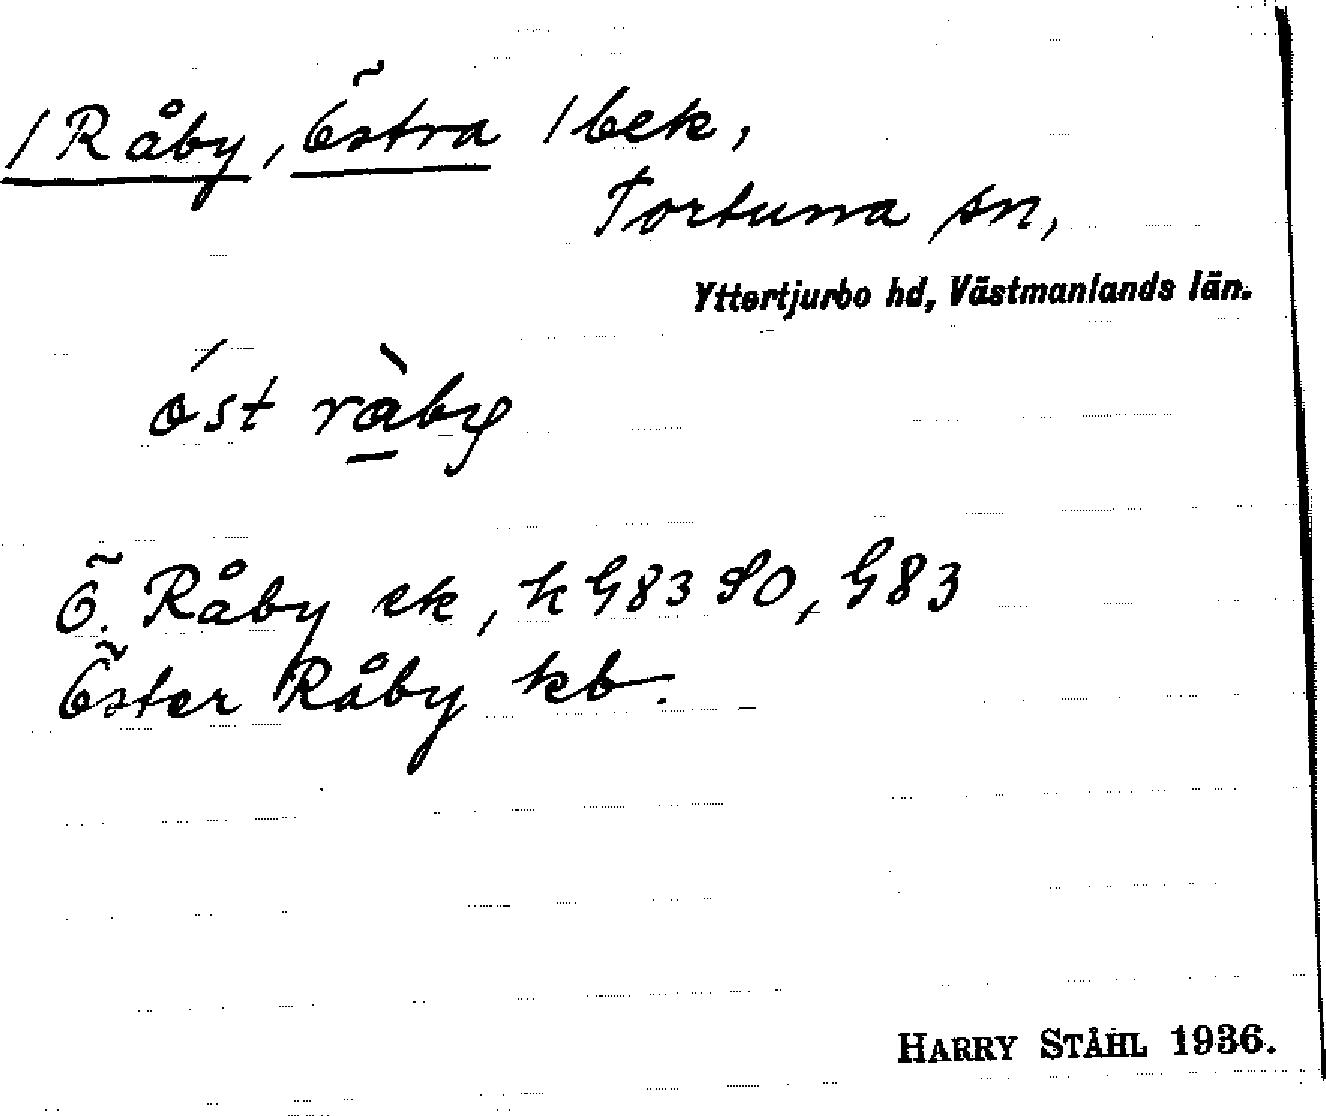 /Råby, Östra / bek,
Tortuna sn,
Yttertjurbo hd, Västmanlands län.
öst ràby
Ö. Råby ek, k G83 SO, G83
Öster Råby kb.
HARRY STÅHL 1936.